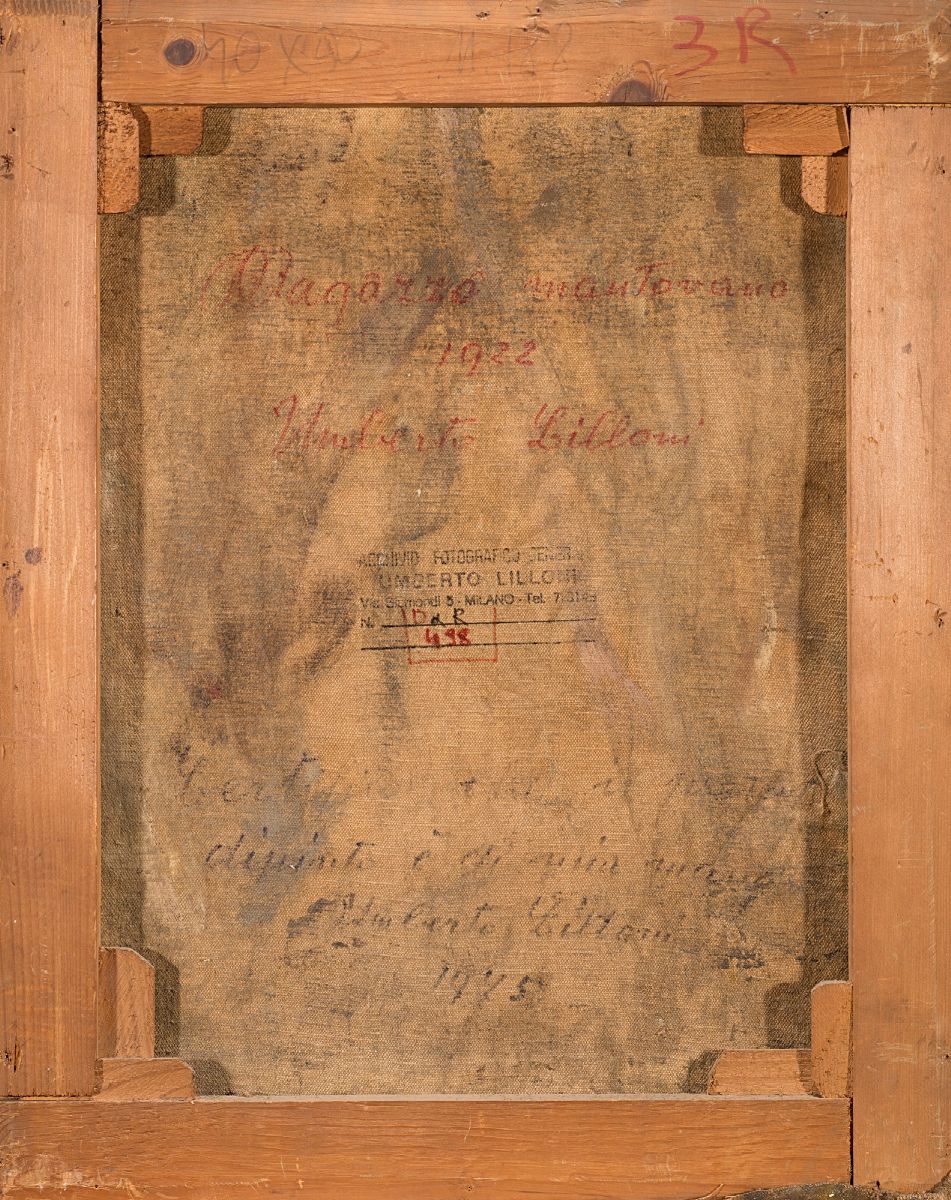 3R
Ragazzo mantovano
1922
Umberto Lilloni
ARCHIVIO FOTOGRAFICO GENER
UMBERTO LILLONI
Via Sismondi 5 - MILANO - Tel.
N. D R
498
dipinto è di mia mano
Umberto Lilloni
1975